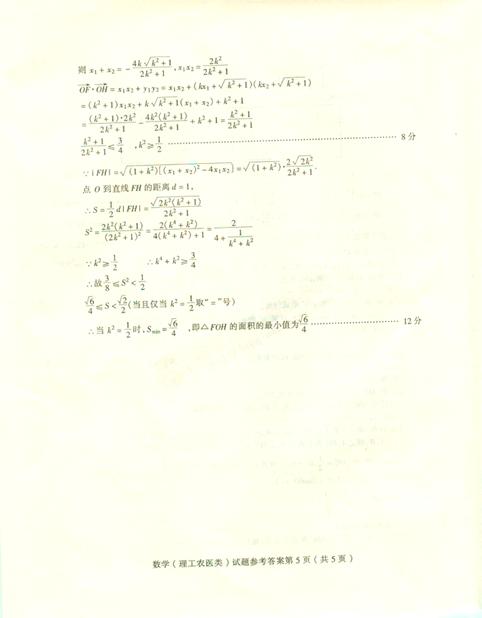 则 x₁+x₂=-4k√(k²+1)/(2k²+1),x₁x₂=2k²/(2k²+1)
OF·OH=x₁x₂+y₁y₂=x₁x₂+(kx₁+√(k²+1))(kx₂+√(k²+1))
=(k²+1)x₁x₂+k√(k²+1)(x₁+x₂)+k²+1
=(k²+1)·2k²/(2k²+1)-4k²(k²+1)/(2k²+1)+k²+1=(k²+1)/(2k²+1)
(k²+1)/(2k²+1)≤3/4 ,k²≥1/2 …… 8分
∵|FH|=√((1+k²)[(x₁+x₂)²-4x₁x₂])=√(1+k²)·2√(2k²)/(2k²+1).
点 O 到直线 FH 的距离 d=1,
∴S=1/2 d|FH|=√(2k²(k²+1))/(2k²+1)
S²=2k²(k²+1)/(2k²+1)²=2(k⁴+k²)/(4(k⁴+k²)+1)=2/(4+1/(k⁴+k²))
∵k²≥1/2 ∴k⁴+k²≥3/4
∴故3/8≤S²<1/2
√6/4≤S<√2/2(当且仅当 k²=1/2取“=”号)
∴当 k²=1/2时,Smin=√6/4 ,即△FOH 的面积的最小值为√6/4 …… 12分
数学(理工农医类)试题参考答案第5页(共5页)